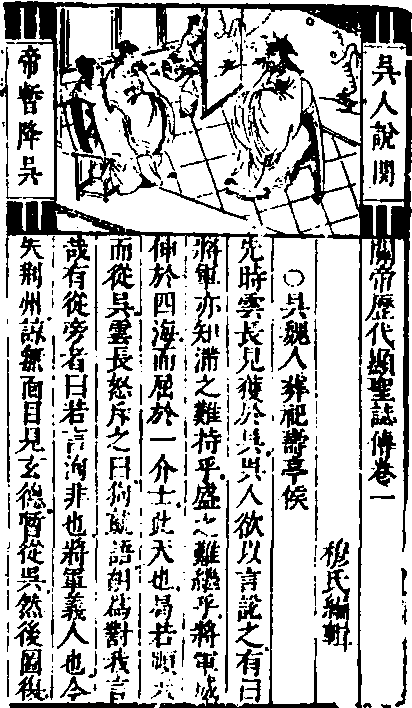 吳人說関
帝暫降吳
關帝歷代顯聖誌傳卷一
穆氏編輯
○吳魏人葬祀壽亭侯
先時雲長見獲於吳吳人欲以言說之有曰
將軍亦知滿之難持乎盛之難繼乎將軍威
伸於四海而屈於一介士此天也曷若順天
而從吳雲長怒斥之曰狗鼠語胡爲對我言
哉有從旁者曰若言洵非也將軍義人也今
失荆州諒無面目見玄德暫從吳然後圖復